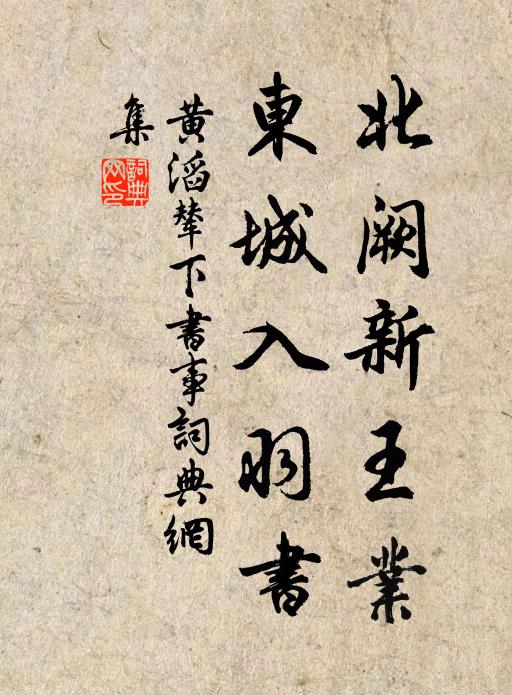 北闕新王業
東城入羽書
黃滔輦下書事詞典網
集
詞典網印